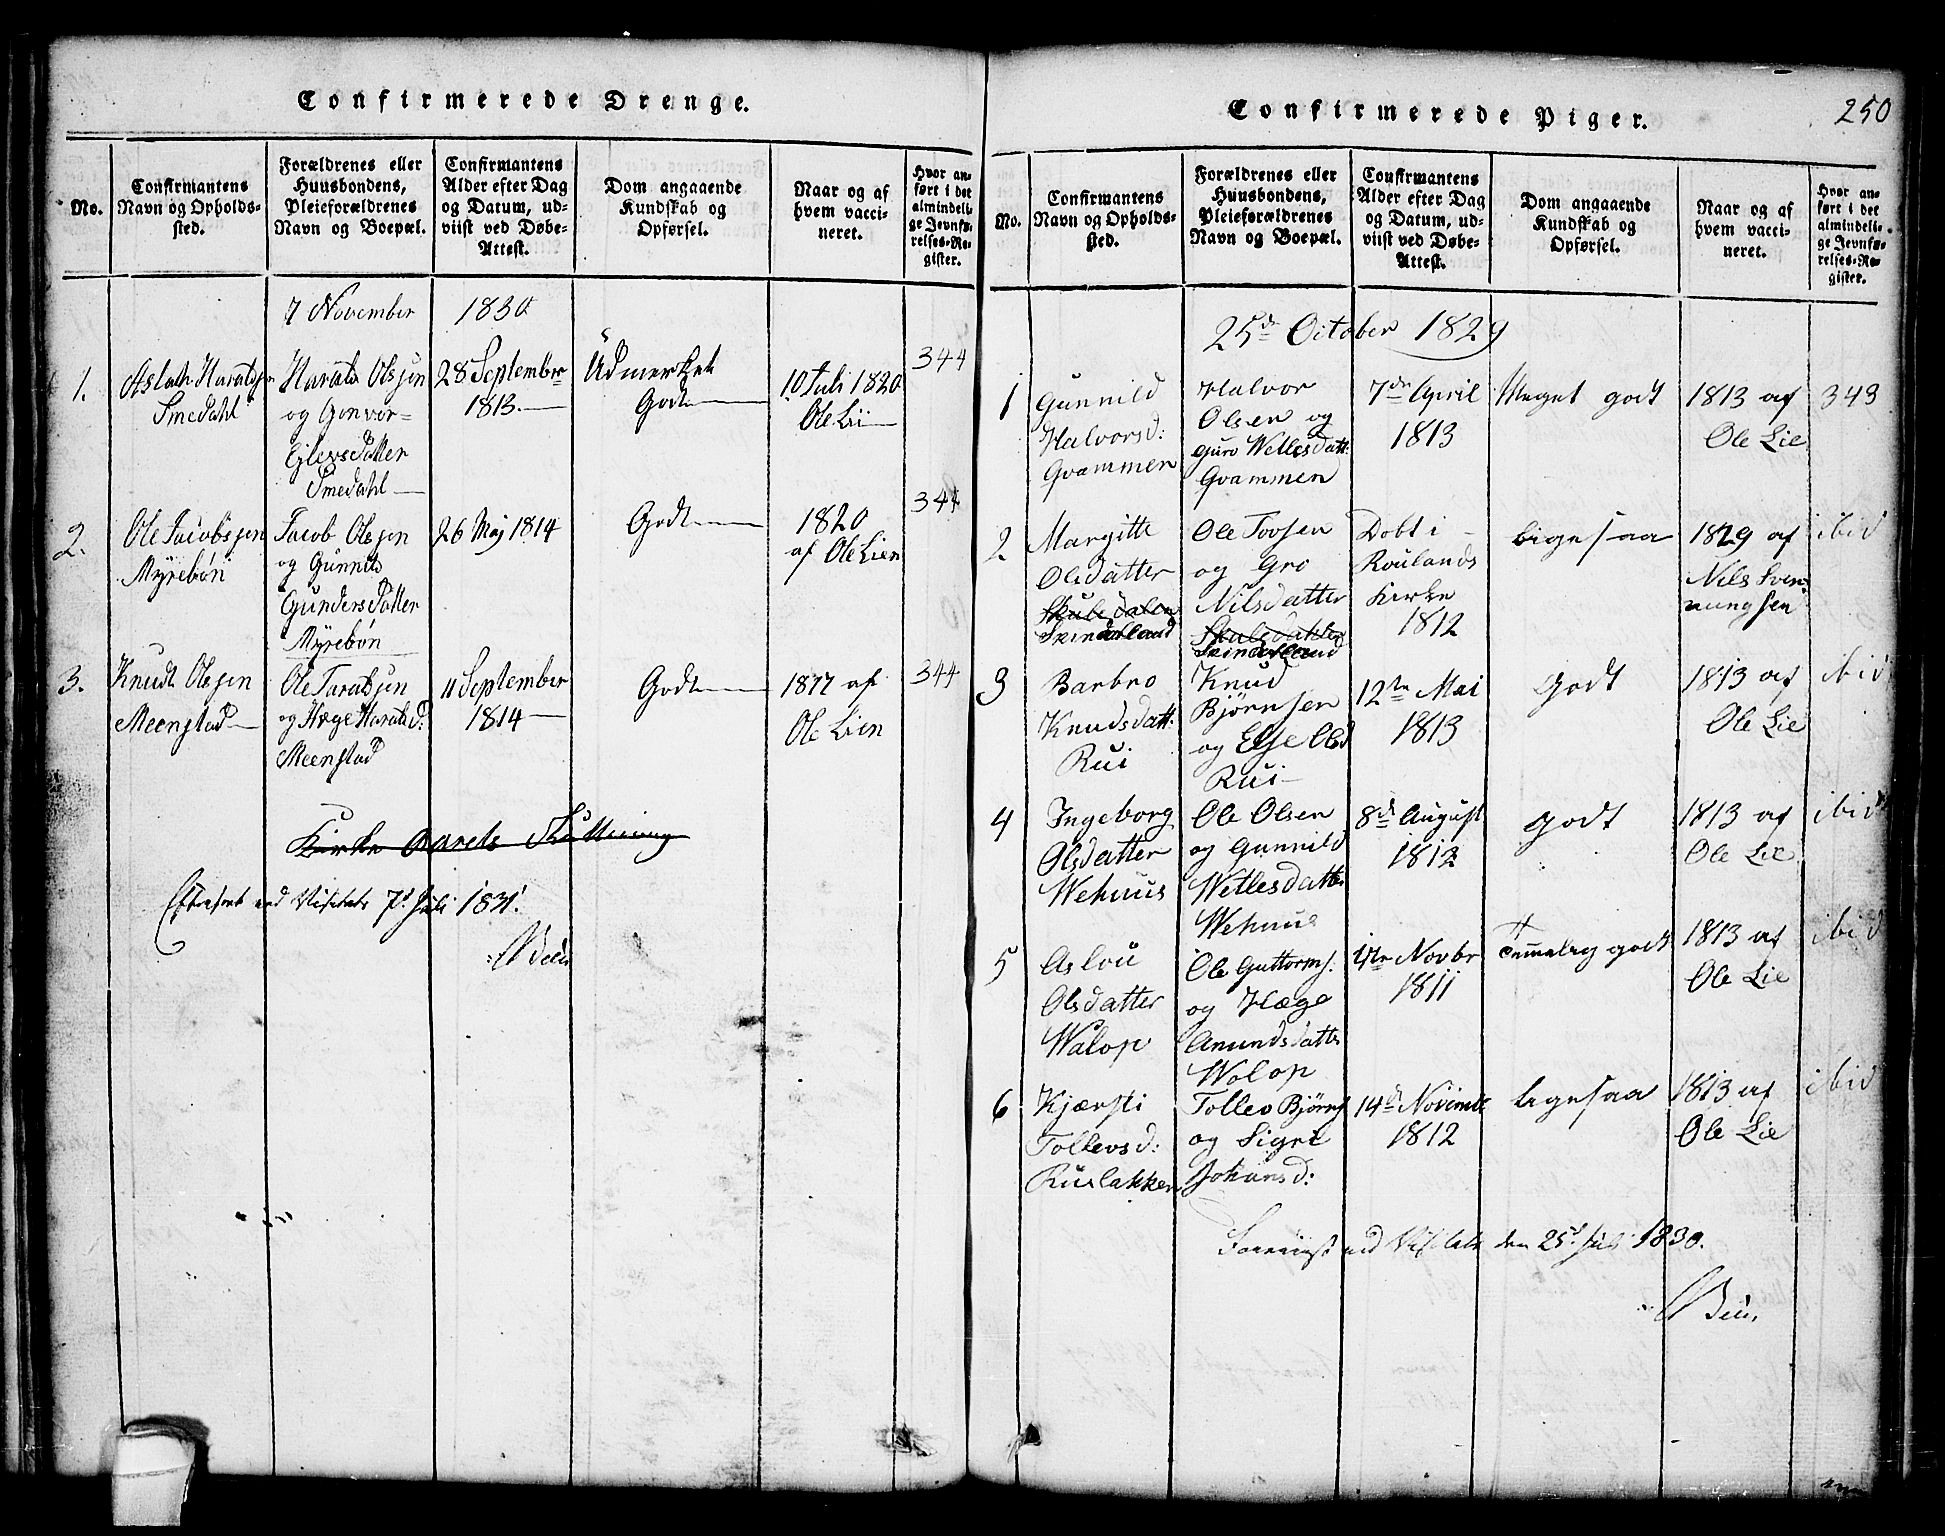 Confirmerede Drenge.
No.
Confirmantens
Navn og Opholds-
sted.
Forældrenes eller
Huusbondens,
Pleieforældrenes
Navn og Boepæl.
Confirmantens
Alder efter Dag
og Datum, ud-
viist ved Døbe-
Attest.
Dom angaaende
Kundskab og
Opførsel.
Naar og af
hvem vacci-
neret.
Hvor an-
ført i det
almindeli-
ge Jevnfø-
relses-Re-
gister.
7 November 1830
1.
Aslak Haralsjen
Smedahl
Harald Olsjen
og Gonvor
Ejlevsdatter
Smedahl
28 September
1813.
Udmerket
Godt
10 Juli 1820
Ole Lii
344
2.
Ole Jacobsjen
Myrebøn
Jacob Olesjen
og Gunnild
Gundersdatter
Myrebøn
26 Maj 1814
Godt
1820
af Ole Lien
344
3.
Knudt Olesjen
Meenstad
Ole Taralsjen
og Hæge Haralsd:
Meenstad
11 September
1814
Godt
1817 af
Ole Lien
344
Kirke Aarets Slutning
Efterseet ved Visitats 7d Juli 1831.
Confirmerede Piger.
250
No.
Confirmantens
Navn og Opholds-
sted.
Forældrenes eller
Huusbondens,
Pleieforældrenes
Navn og Boepæl.
Confirmantens
Alder efter Dag
og Datum, ud-
viist ved Døbe-
Attest.
Dom angaaende
Kundskab og
Opførsel.
Naar og af
hvem vacci-
neret.
Hvor an-
ført i det
almindeli-
ge Jevnfø-
relses-Re-
gister.
25de October 1829
1
Gunnild
Halvorsd:
Gvammen
Halvor
Olsen og
Guro Wetlesdatt:
Gvammen
7de April
1813
Meget godt
1813 af
Ole Lie
343
2
Margitte
Olsdatter
Skulsdalen
Skindalland
Ole Tovsen
og Gro
Nilsdatter
Skulsdahlen
Døbt i
Roulands
Kirke
1812
ligesaa
1829 af
Nils Sven
nungsen
ibid
3
Barbro
Knudsdatt:
Rui
Knud
Bjørnsen
og Elsje Olsd
Rui
12te Mai
1813
Godt
1813 af
Ole Lie
ibid
4
Ingeborg
Olsdatter
Wehuus
Ole Olsen
og Gunnild
Wetlesdatter
Wehuus
8de August
1812
godt
1813 af
Ole Lie
ibid
5
Aslou
Olsdatter
Walop
Ole Guttorms:
og Hæge
Amundsdatter
Wolop
1te Novbr
1811
Temmelig godt
1813 af
Ole Lie
ibid
6
Kjærsti
Tollevsd:
Ruslakken
Tollev Bjørns
og Sigri
Johansd:
14de Novemb
1812
ligesaa
1813 af
Ole Lie
ibid
Foreviist ved Visitats den 25d Juli 1830.